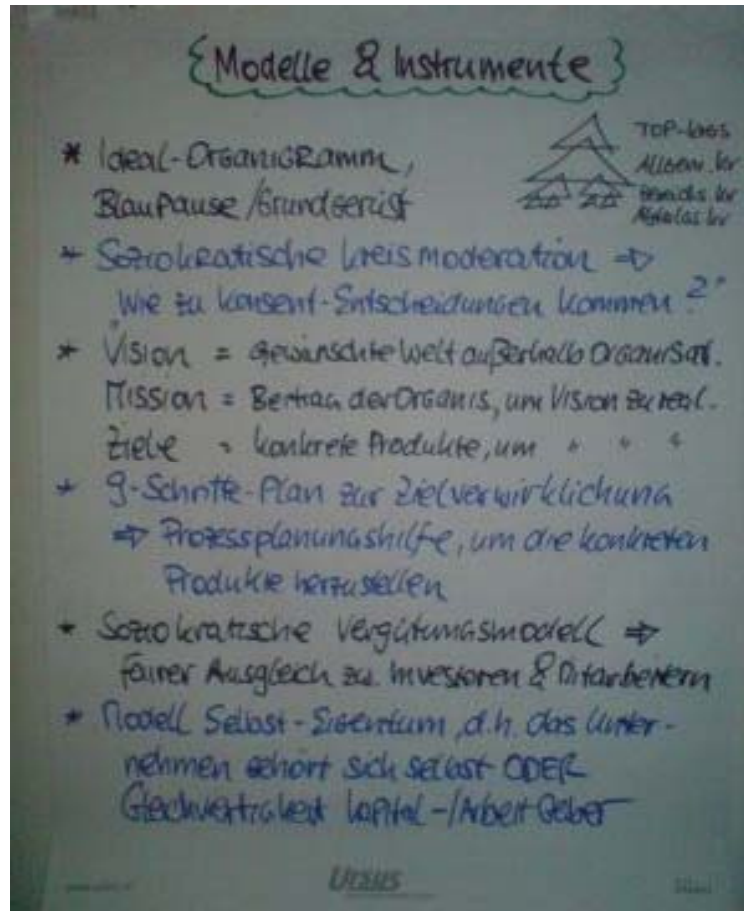 {Modelle & Instrumente}
* Ideal-Organigramm,
Blaupause/Grundgerüst
TOP-
Allgem. kr
Bereichs kr
kr
* Soziokratische Kreismoderation ⇒
"Wie zu Konsent-Entscheidungen kommen?"
* Vision = gewünschte Welt außerhalb Organisat.
Mission = Beitrag der Organis, um Vision zu real.
Ziele = konkrete Produkte, um " " "
* 9-Schritte-Plan zur Zielverwirklichung
⇒ Prozessplanungshilfe, um die konkreten
Produkte herzustellen
* Soziokratische Vergütungsmodell ⇒
fairer Ausgleich zu Investoren & Mitarbeitern
* Modell Selbst-Eigentum, d.h. das Unter-
nehmen gehört sich selbst ODER
Gleichwertigkeit Kapital-/Arbeit Geber
Ursus